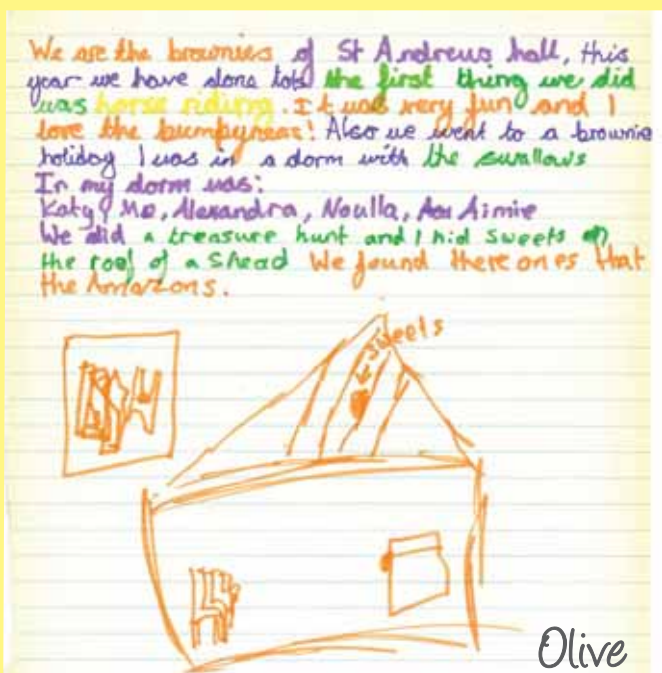 We are the brownies of St Andrews hall, this
year we have done lots the first thing we did
was horse riding. It was very fun and I
love the bumpyness! Also we went to a brownie
holiday I was in a dorm with the swallows
In my dorm was:
Katy, Me, Alexandra, Noulla, Aimie
We did a treasure hunt and I hid sweets on
the roof of a shead We found there ones that
the Amazons.
sweets
Olive